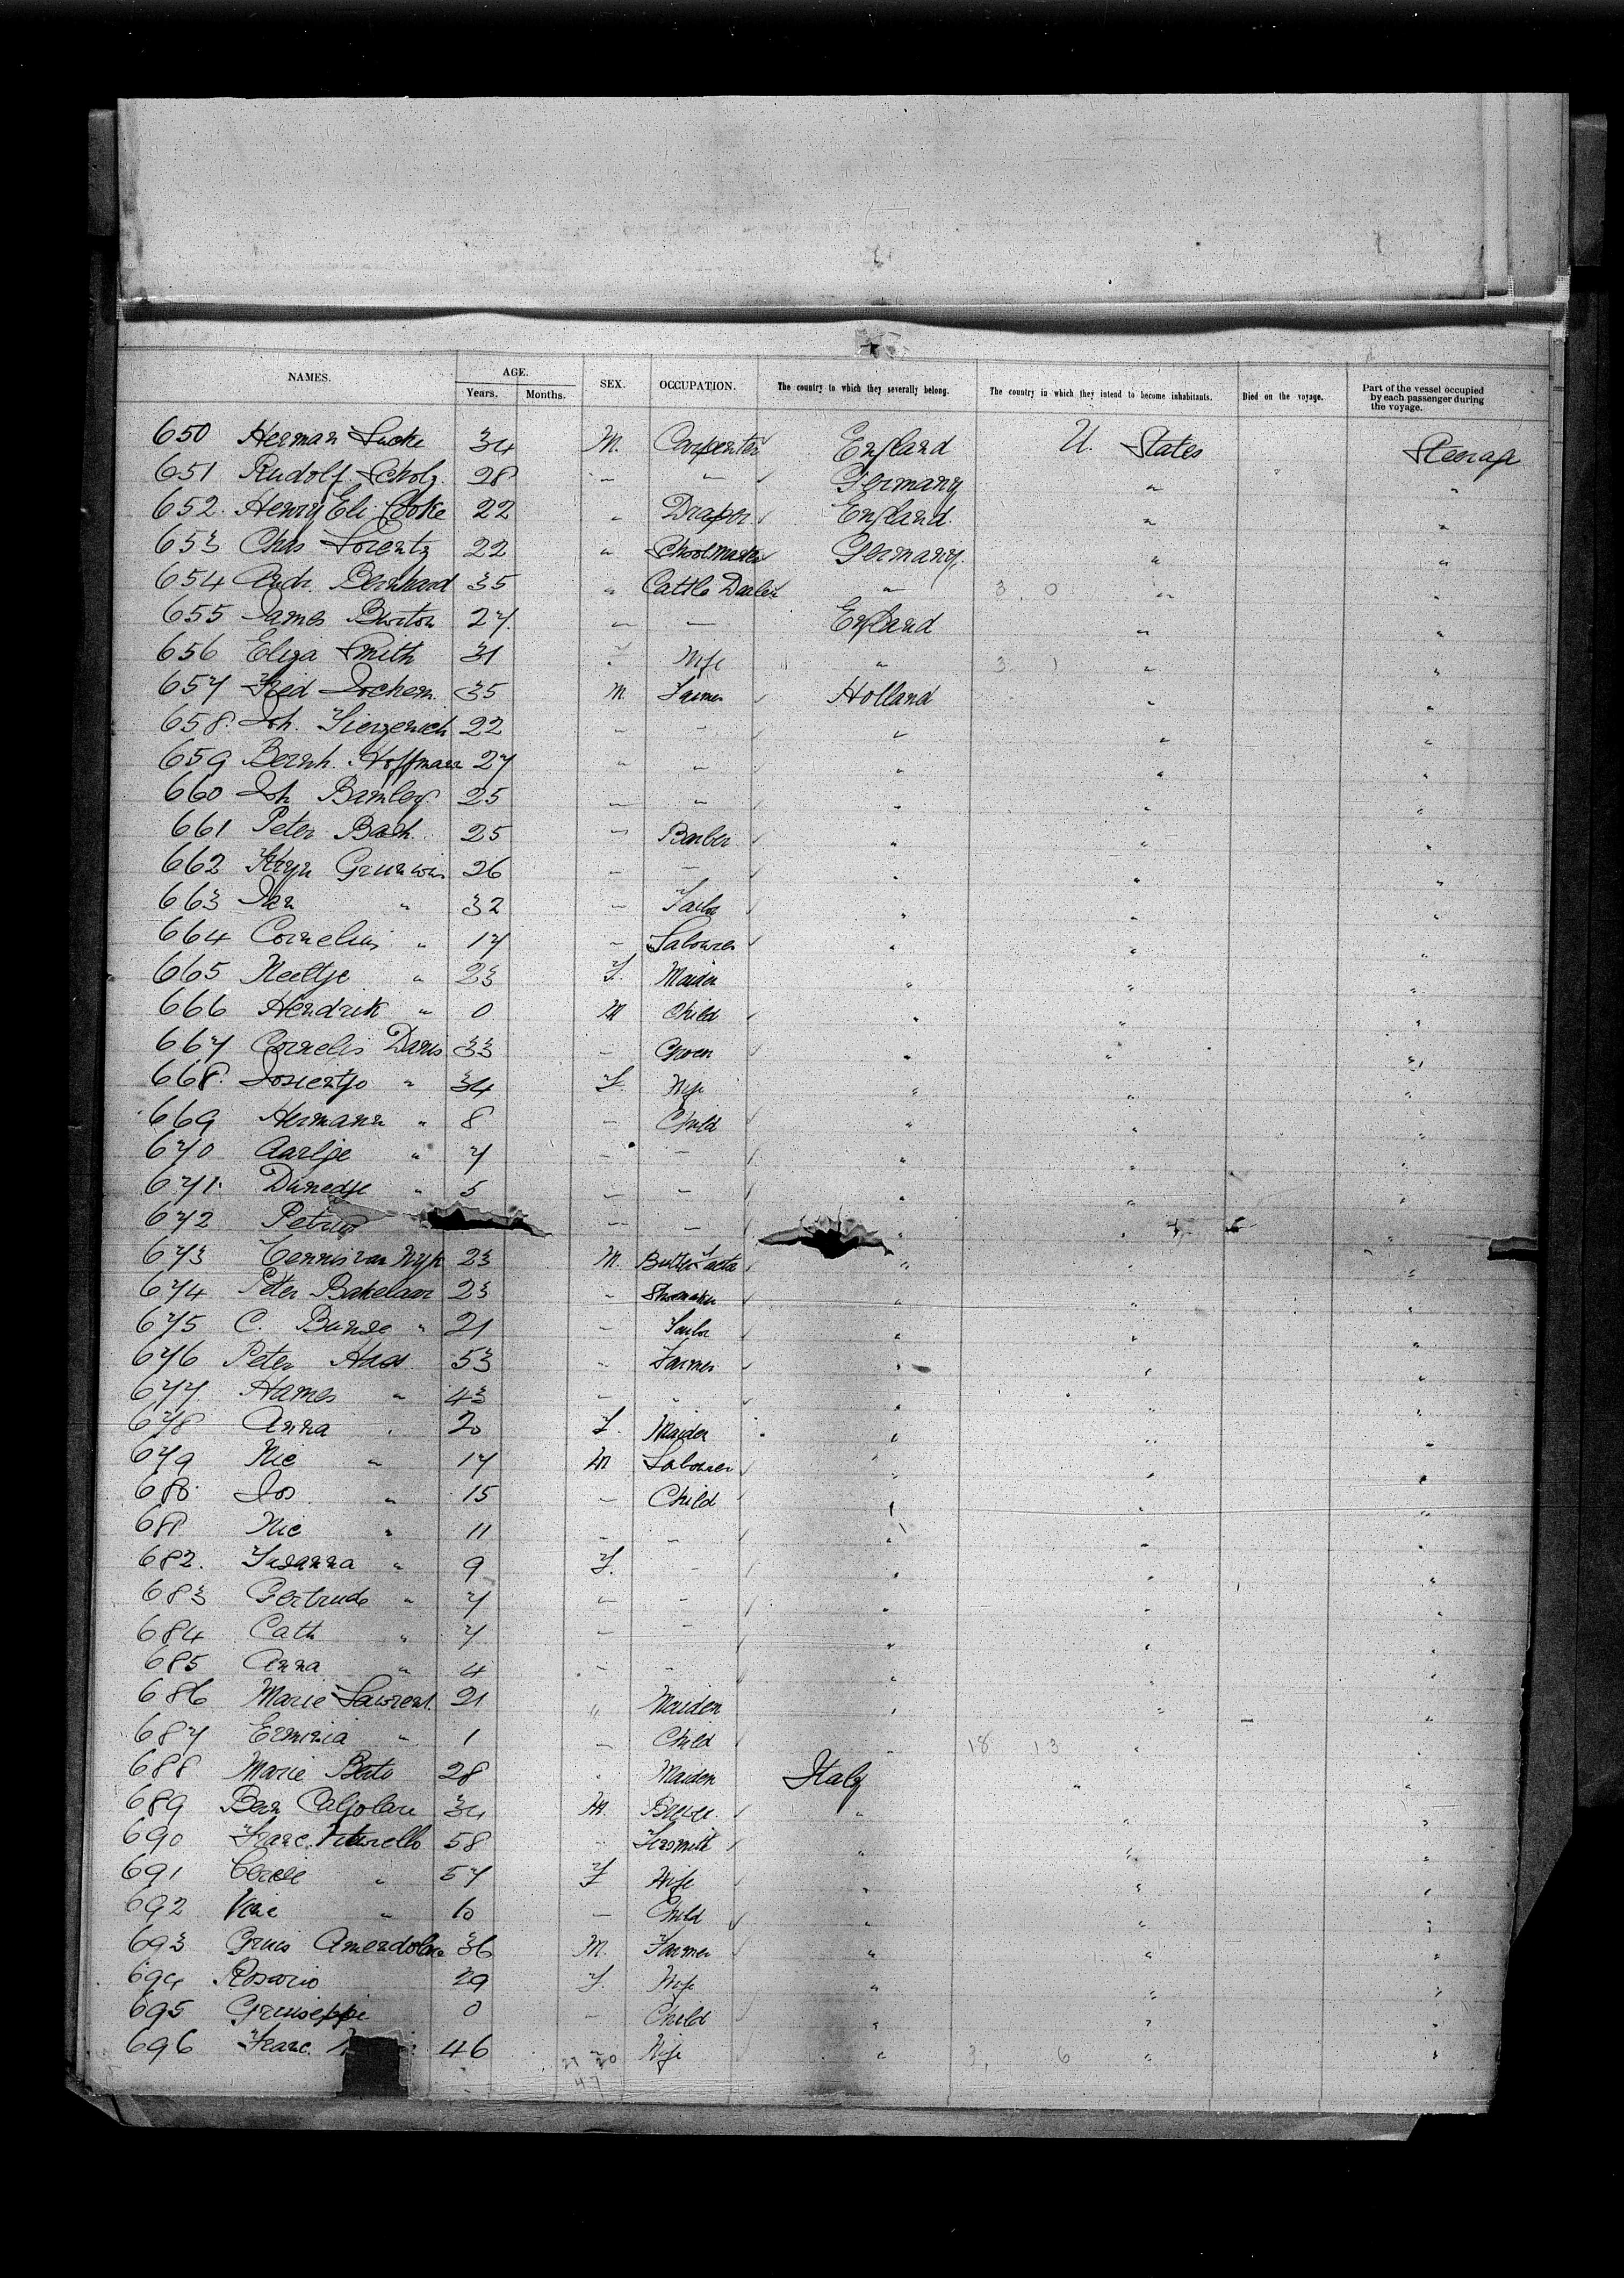 NAMES. AGE. SEX. OCCUPATION. The country to which they severally belong. The country in which they intend to become inhabitants. Died on the voyage. Part of the vessel occupied by each passenger during the voyage.
Years. Months.
650 Herman 34 M. Carpenter England U. States Steerage
651 Rudolf Scholz 28 — — Germany " "
652. Henry Eli Cooke 22 " Draper England. " "
653 Chas Lorentz 22 " Schoolmaster Germany. " "
654 Andr. Bernhard 35 " Cattle Dealer " 3. 0 " "
655 James Burton 27. — — England " "
656 Eliza Smith 31 F. Wife " 3 1 " "
657 Fried Jochem. 35 M. Farmer Holland " "
658. Joh. 22 — — " " "
659 Bernh. Hoffmann 27 " — " " "
660 Joh 25 — " " " "
661 Peter 25 — Barber " " "
662 26 — — " " "
663 Jan " 32 — Tailor " " "
664 Cornelius " 17 — Labourer " " "
665 Neeltje " 23 F. Maiden " " "
666 Hendrik " 0 M Child " " "
667 Cornelis 33 — " " "
668. " 34 F. Wife " " "
669 Hermann " 8 — Child " " "
670 Aartje " 7 — — " " "
671. " 5 — — " " "
672 — — " " "
673 van 23 M. " " "
674 Peter Bakelaar 23 " Shoemaker " " "
675 C. " 21 — Tailor " " "
676 Peter Haas 53 " Farmer " " "
677 Hames " 43 — " " " "
678 Anna " 20 F. Maiden " " "
679 Nic " 17 M Labourer " " "
680. Jos " 15 — Child " " "
681 Nic " 11 — — " " "
682. Susanna " 9 F. — " " "
683 Gertrude " 7 — — " " "
684 Cath " 7 — — " " "
685 Anna " 4 — — " " "
686 Marie Laurent. 21 " Maiden " " "
687 Erminia " 1 — Child " 18 13 " "
688 Marie 28 " Maiden Italy " "
689 34 M. " " "
690 Franc. 58 — " " "
691 " 57 F Wife " " "
692 " 10 — Child " " "
693 36 M. Farmer " " "
694 Rosario 29 F. Wife " " "
695 Giuseppi 0 — Child " " "
696 Franc. 46 — Wife " 3, 6 " "
27 20
47